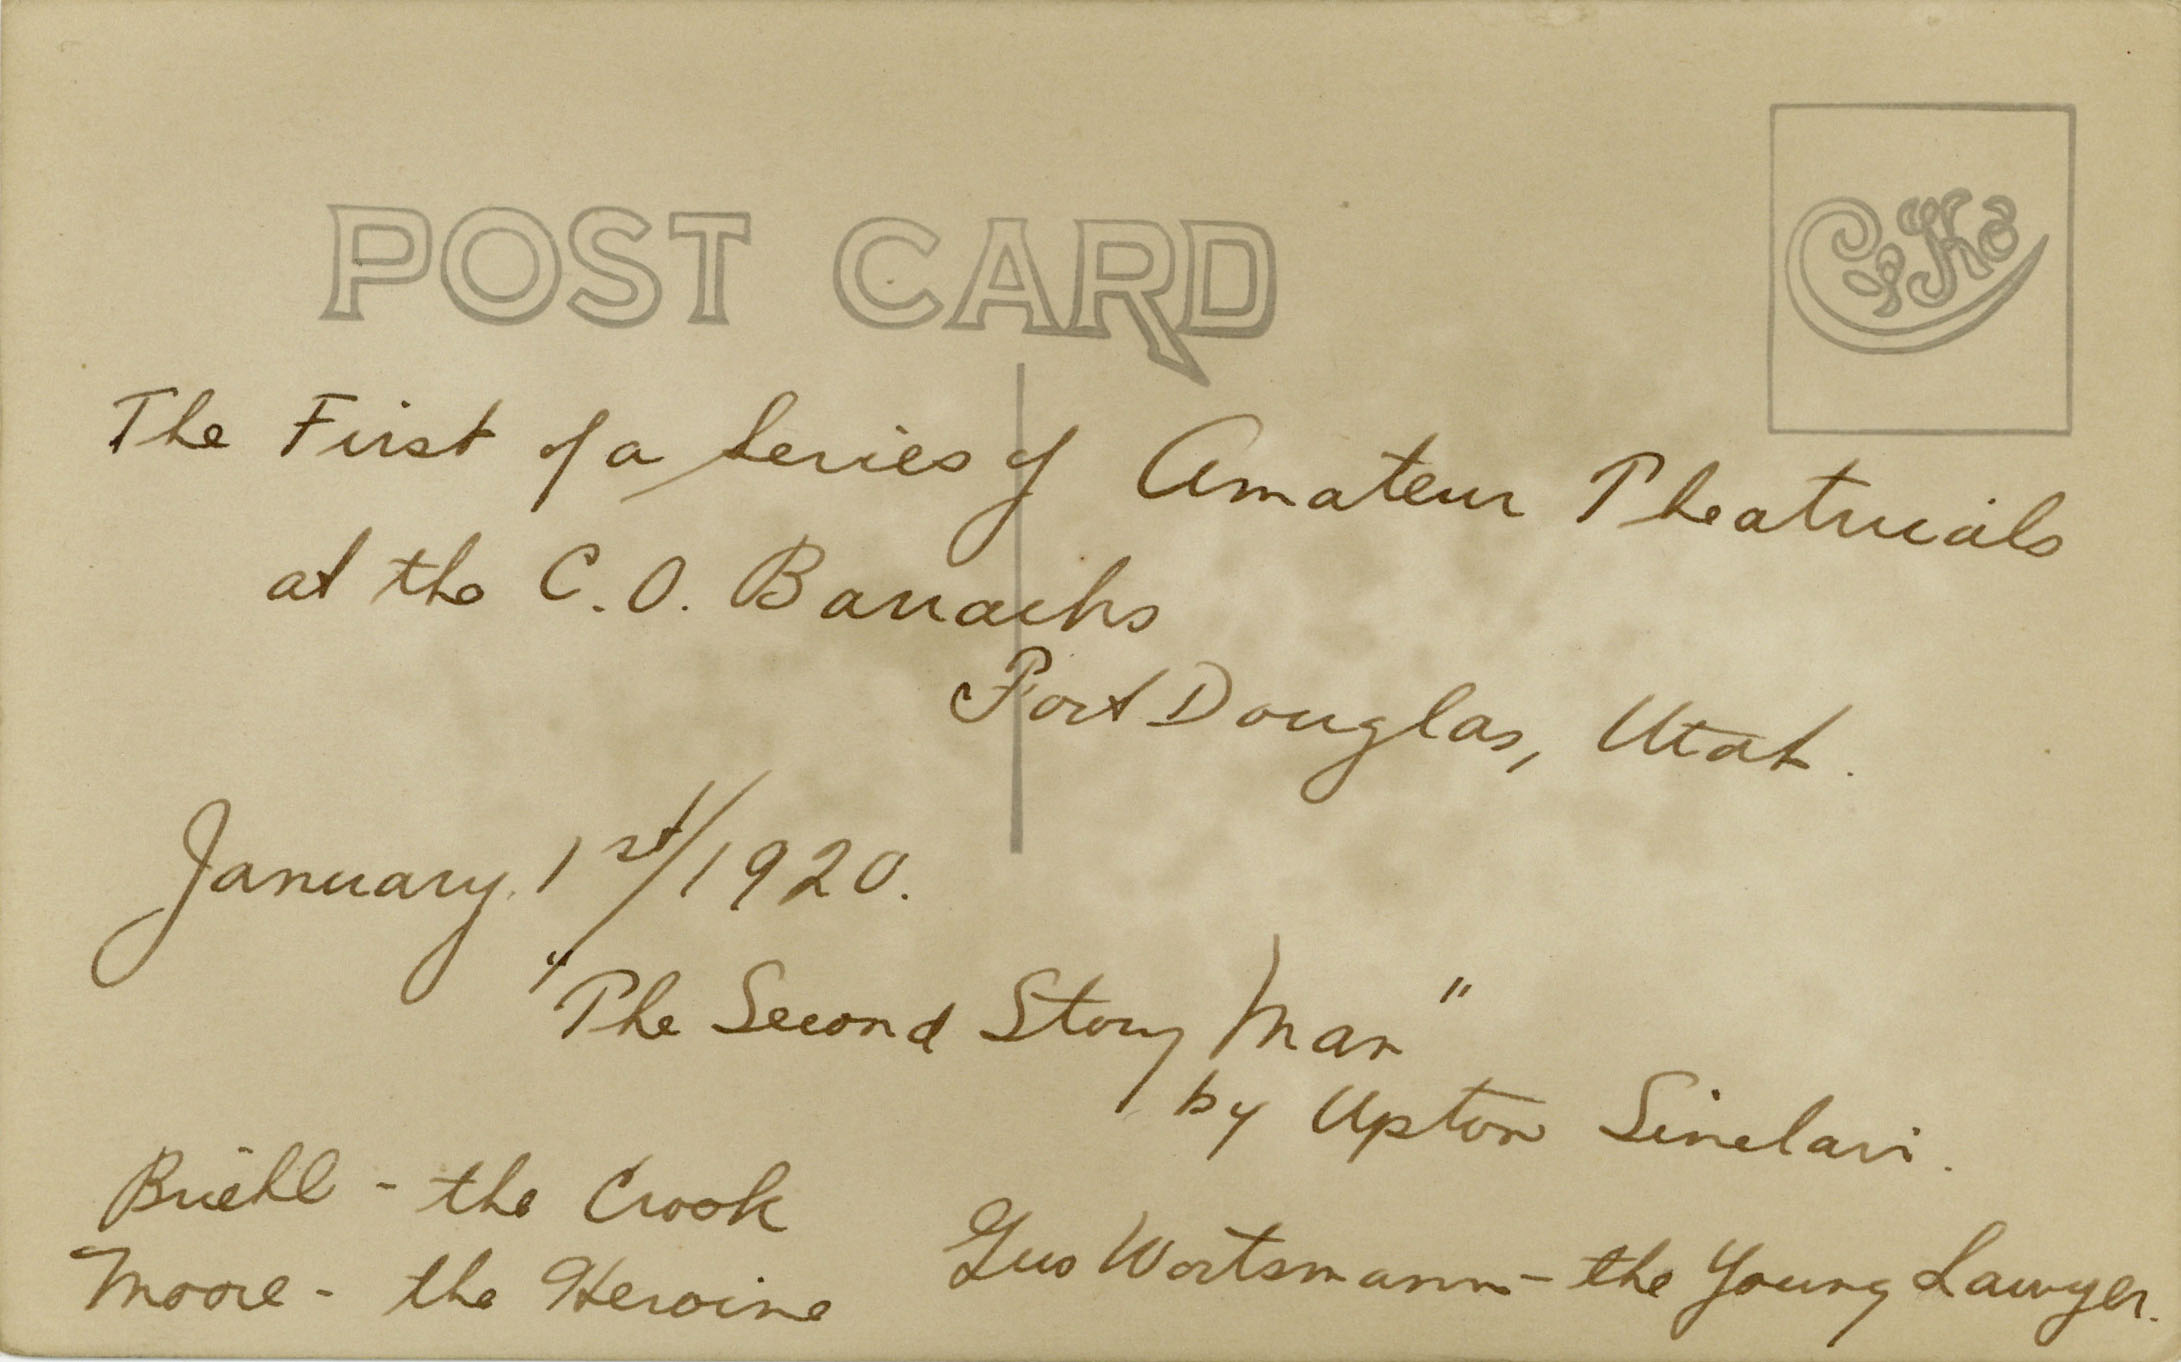 POST CARD
CyKo
The First of a Series of Amateur Theatricals
at the C.O. Barracks
Fort Douglas, Utah.
January 1st/1920.
"The Second Story Man"
by Upton Sinclair.
Briehl - the Crook
Moore - the Heroine
Gus Wortsmann - the Young Lawyer.